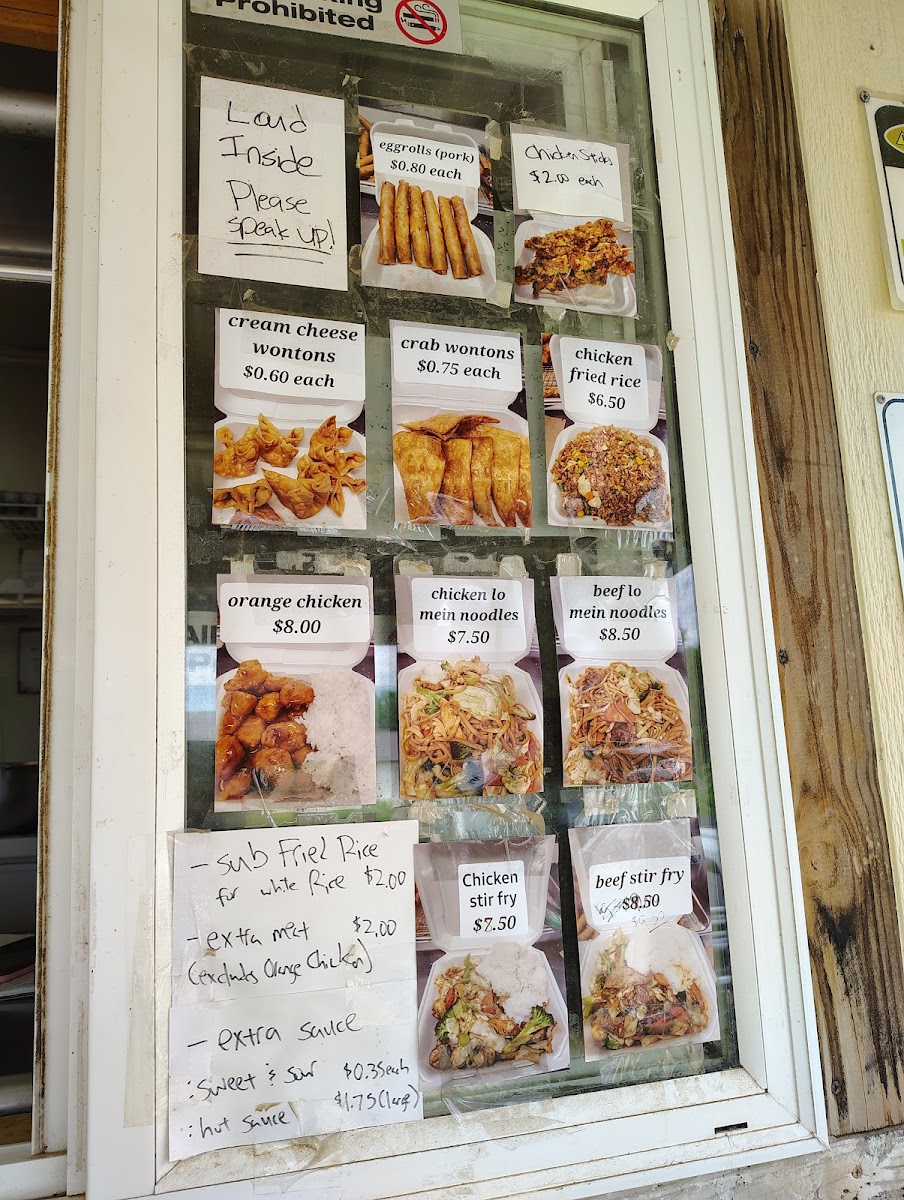 Prohibited
Loud
Inside
Please
speak up!
eggrolls (pork)
$0.80 each
Chicken Sticks
$2.00 each
cream cheese
wontons
$0.60 each
crab wontons
$0.75 each
chicken
fried rice
$6.50
orange chicken
$8.00
chicken lo
mein noodles
$7.50
beef lo
mein noodles
$8.50
- Sub Fried Rice
for white Rice $2.00
- extra meat $2.00
(excludes Orange Chicken)
- extra sauce
: sweet & sour $0.35 each
: hot sauce $1.75 (large)
Chicken
stir fry
$7.50
beef stir fry
$8.50